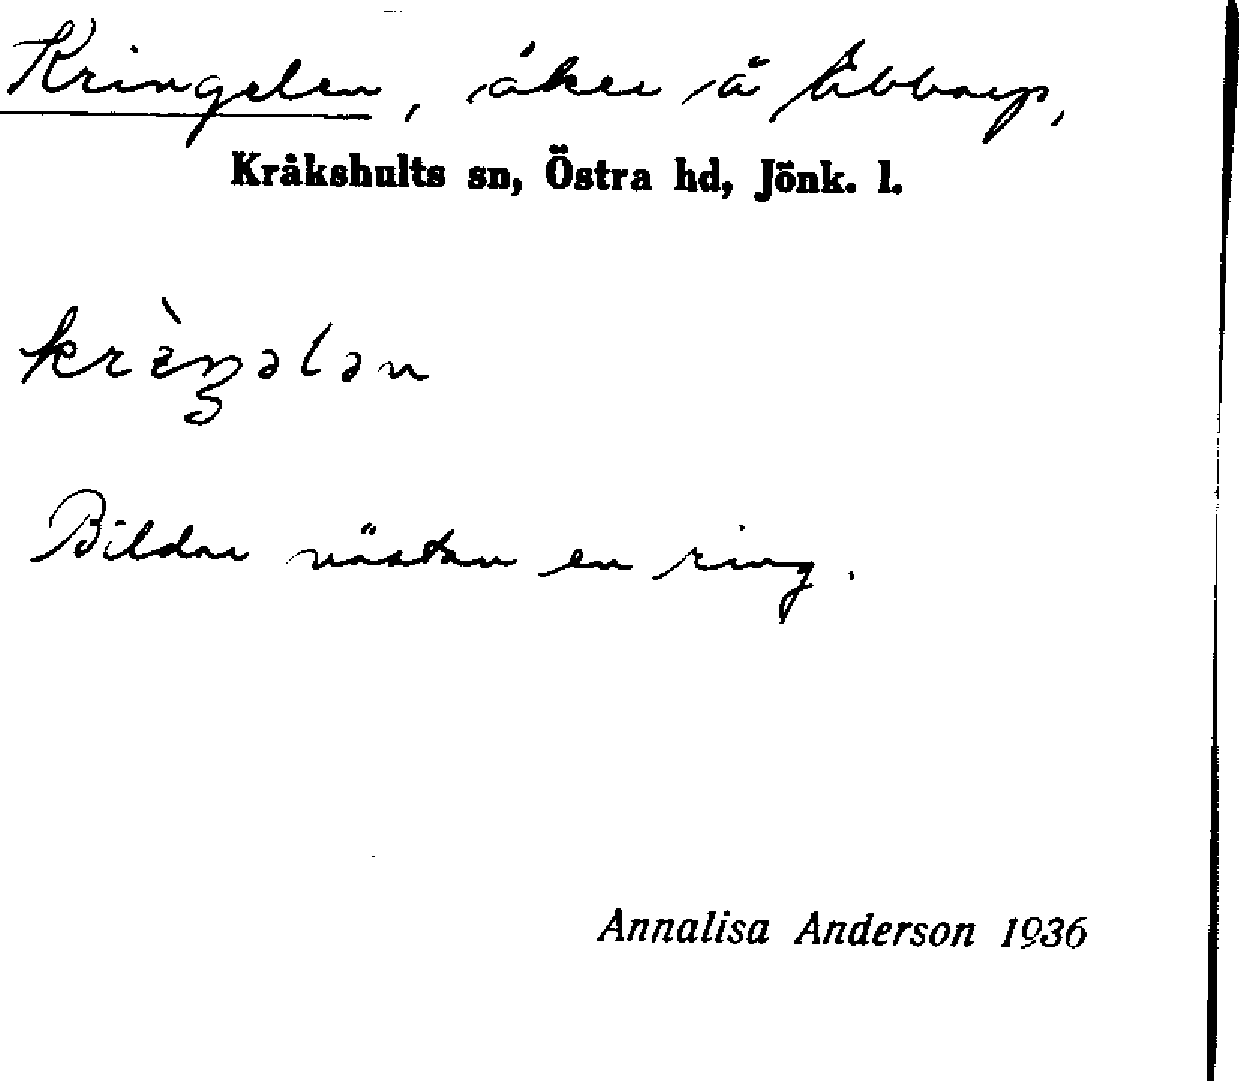 Kringelen, åker å Åbbarp,
Kråkshults sn, Östra hd, Jönk. l.
krìŋələn
Bildar nästan en ring.
Annalisa Anderson 1936